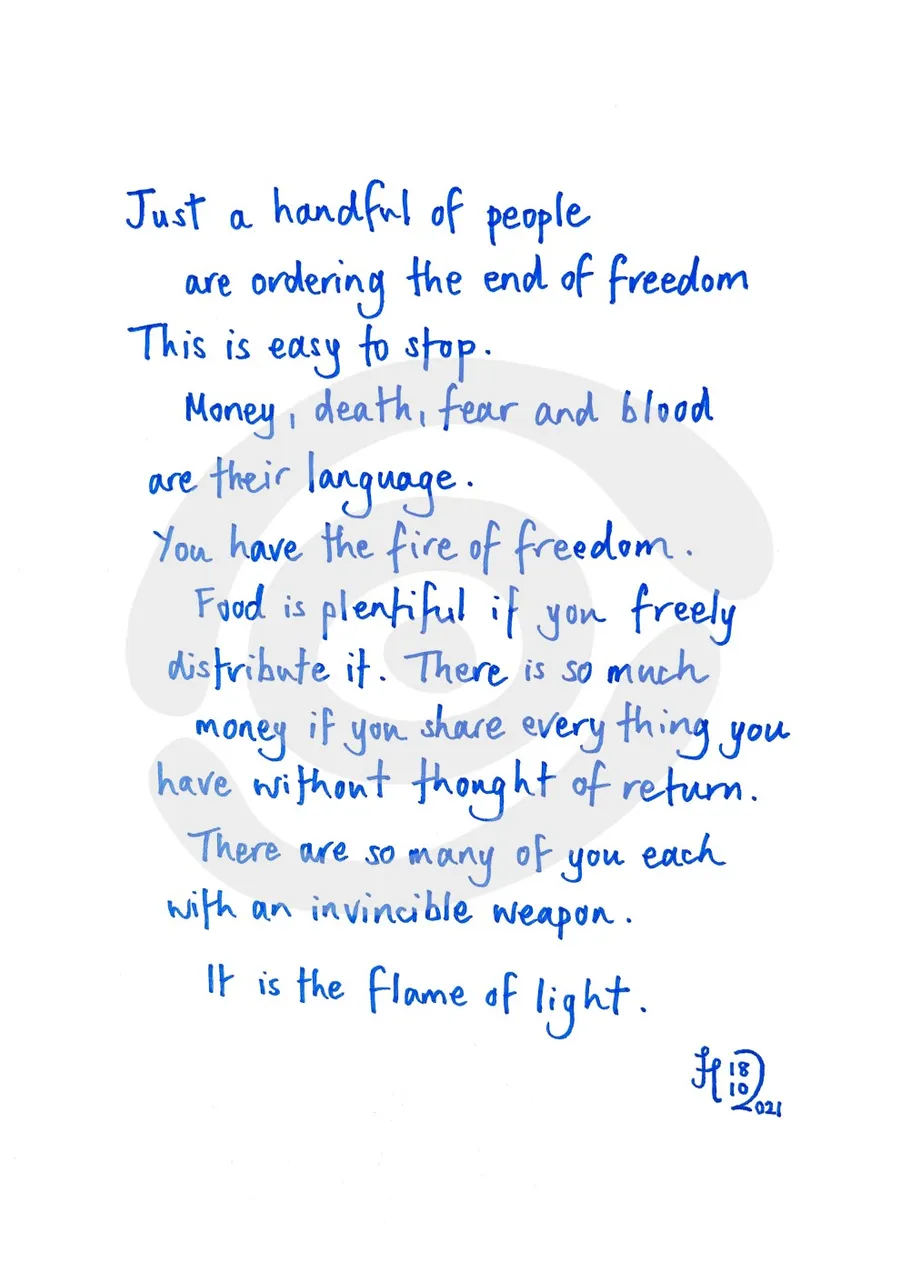 Just a handful of people
are ordering the end of freedom
This is easy to stop.
Money, death, fear and blood
are their language.
You have the fire of freedom.
Food is plentiful if you freely
distribute it. There is so much
money if you share every thing you
have without thought of return.
There are so many of you each
with an invincible weapon.
It is the flame of light.
18
10
2021